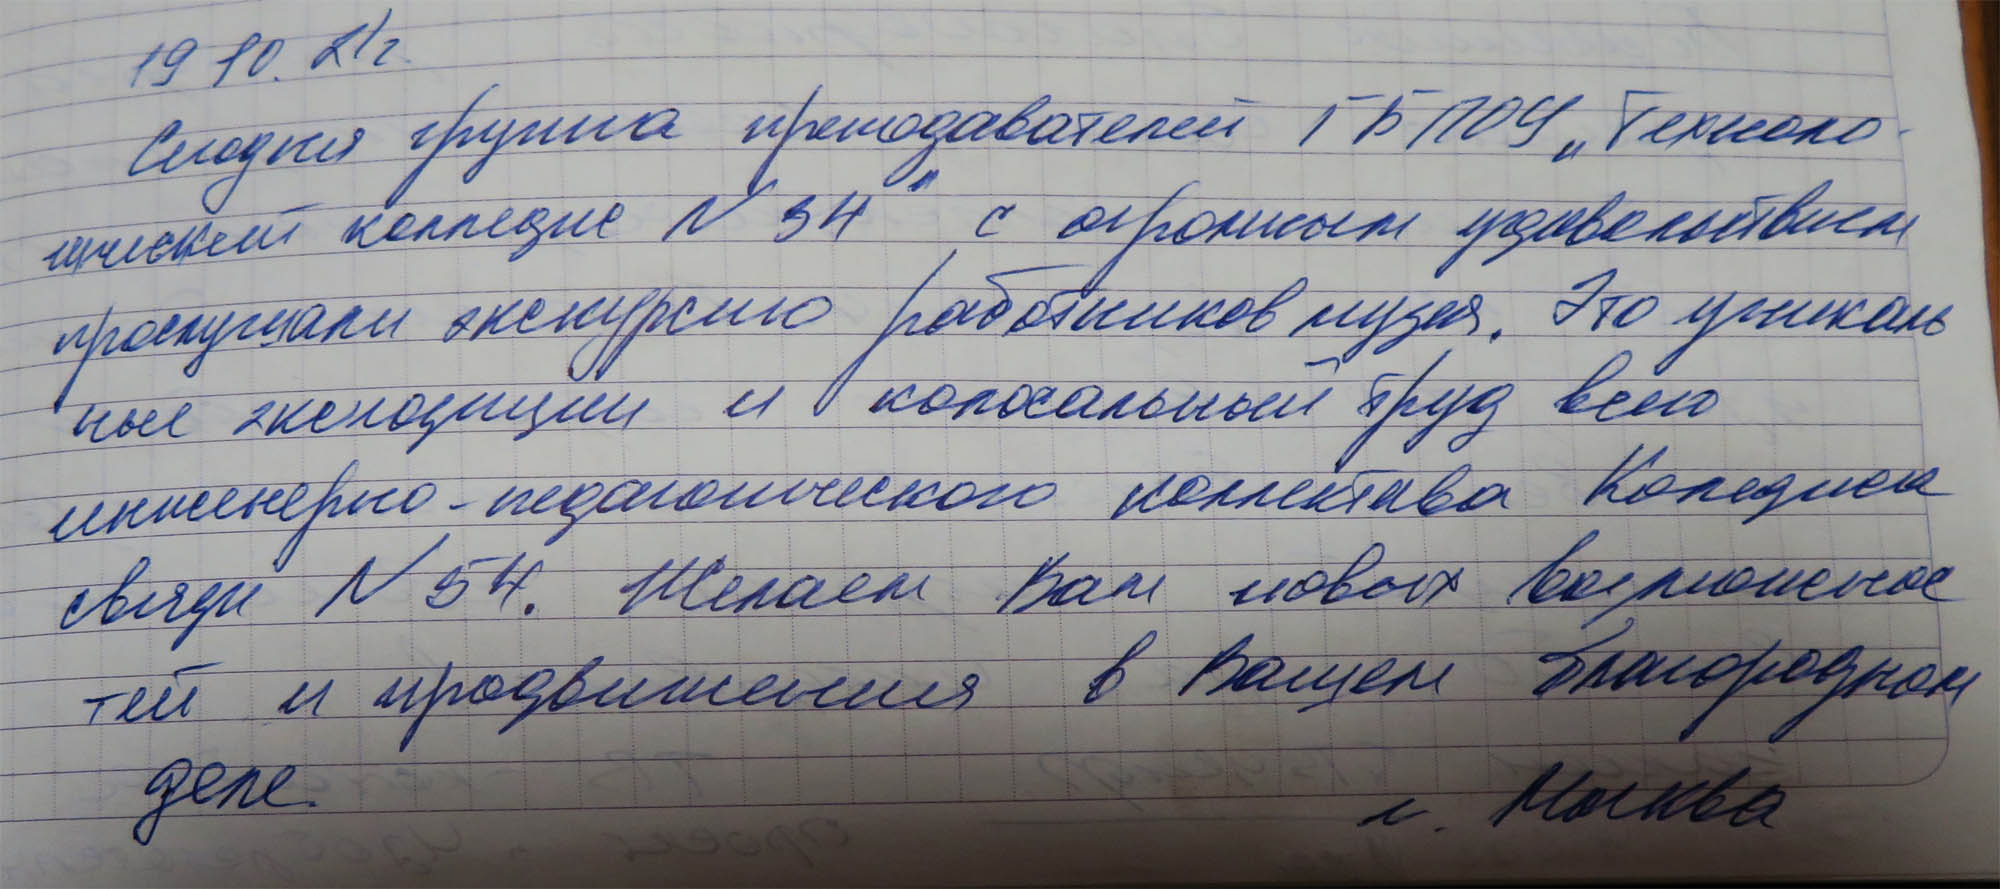 19 10. 21г.
Сегодня группа преподавателей ГБПОУ „Техноло-
гический колледж N 34" с огромным удовольствием
прослушали экскурсию работников музея. Это уникаль
ные экспозиции и колосальный труд всего
инженерно-педагогического коллектива Коледжа
связи N 54. Желаем Вам новых возможнос
тей и продвижения в Вашем благородном
деле.
г. Москва